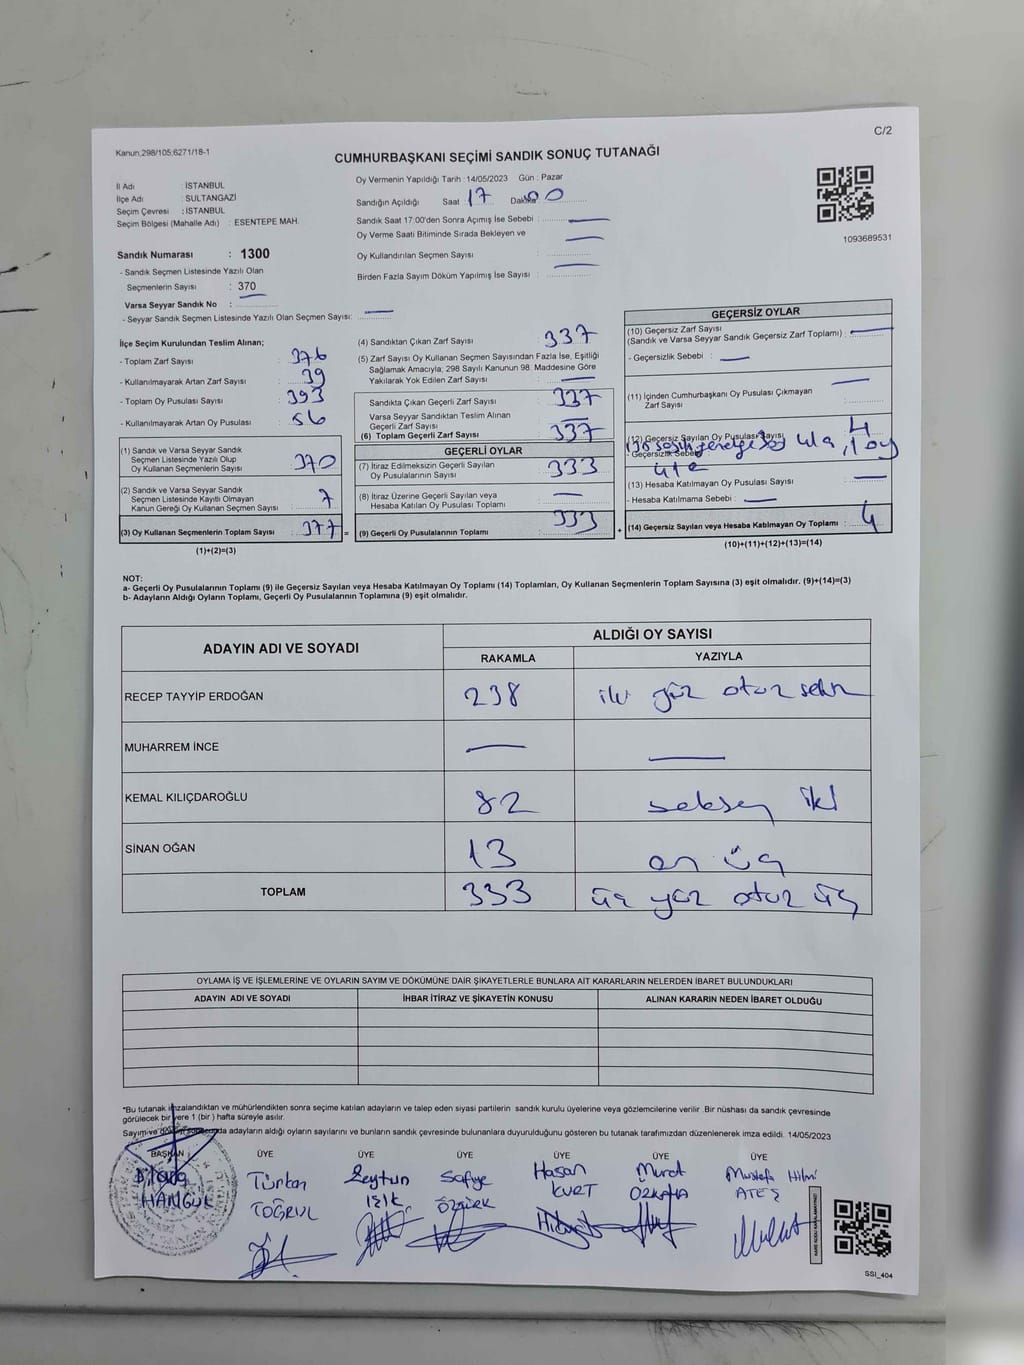 C/2
Kanun,298/105;6271/18-1
CUMHURBAŞKANI SEÇİMİ SANDIK SONUÇ TUTANAĞI
İl Adı : İSTANBUL
İlçe Adı : SULTANGAZİ
Seçim Çevresi : İSTANBUL
Seçim Bölgesi (Mahalle Adı) : ESENTEPE MAH.
Sandık Numarası : 1300
- Sandık Seçmen Listesinde Yazılı Olan
Seçmenlerin Sayısı : 370
Varsa Seyyar Sandık No :
- Seyyar Sandık Seçmen Listesinde Yazılı Olan Seçmen Sayısı:
Oy Vermenin Yapıldığı Tarih :14/05/2023 Gün : Pazar
Sandığın Açıldığı Saat 17 Dakika 00
Sandık Saat 17:00'den Sonra Açımış İse Sebebi :
Oy Verme Saati Bitiminde Sırada Bekleyen ve
Oy Kullandırılan Seçmen Sayısı :
Birden Fazla Sayım Döküm Yapılmış İse Sayısı :
1093689531
İlçe Seçim Kurulundan Teslim Alınan;
- Toplam Zarf Sayısı : 376
- Kullanılmayarak Artan Zarf Sayısı : 39
- Toplam Oy Pusulası Sayısı : 393
- Kullanılmayarak Artan Oy Pusulası : 56
(1) Sandık ve Varsa Seyyar Sandık
Seçmen Listesinde Yazılı Olup
Oy Kullanan Seçmenlerin Sayısı : 370
(2) Sandık ve Varsa Seyyar Sandık
Seçmen Listesinde Kayıtlı Olmayan
Kanun Gereği Oy Kullanan Seçmen Sayısı : 7
(3) Oy Kullanan Seçmenlerin Toplam Sayısı : 377 =
(1)+(2)=(3)
(4) Sandıktan Çıkan Zarf Sayısı : 337
(5) Zarf Sayısı Oy Kullanan Seçmen Sayısından Fazla İse, Eşitliği
Sağlamak Amacıyla; 298 Sayılı Kanunun 98. Maddesine Göre
Yakılarak Yok Edilen Zarf Sayısı :
Sandıkta Çıkan Geçerli Zarf Sayısı : 337
Varsa Seyyar Sandıktan Teslim Alınan
Geçerli Zarf Sayısı :
(6) Toplam Geçerli Zarf Sayısı : 337
GEÇERLİ OYLAR
(7) İtiraz Edilmeksizin Geçerli Sayılan
Oy Pusulalarının Sayısı : 333
(8) İtiraz Üzerine Geçerli Sayılan veya
Hesaba Katılan Oy Pusulası Toplamı :
(9) Geçerli Oy Pusulalarının Toplamı : 333 +
GEÇERSİZ OYLAR
(10) Geçersiz Zarf Sayısı
(Sandık ve Varsa Seyyar Sandık Geçersiz Zarf Toplamı) :
- Geçersizlik Sebebi :
(11) İçinden Cumhurbaşkanı Oy Pusulası Çıkmayan
Zarf Sayısı
(12) Geçersiz Sayılan Oy Pusulası Sayısı : 4
- Geçersizlik Sebebi
1 oy
(13) Hesaba Katılmayan Oy Pusulası Sayısı :
- Hesaba Katılmama Sebebi :
(14) Geçersiz Sayılan veya Hesaba Katılmayan Oy Toplamı : 4
(10)+(11)+(12)+(13)=(14)
NOT:
a- Geçerli Oy Pusulalarının Toplamı (9) ile Geçersiz Sayılan veya Hesaba Katılmayan Oy Toplamı (14) Toplamları, Oy Kullanan Seçmenlerin Toplam Sayısına (3) eşit olmalıdır. (9)+(14)=(3)
b- Adayların Aldığı Oyların Toplamı, Geçerli Oy Pusulalarının Toplamına (9) eşit olmalıdır.
ADAYIN ADI VE SOYADI ALDIĞI OY SAYISI
RAKAMLA YAZIYLA
RECEP TAYYİP ERDOĞAN 238 iki yüz otuz sekiz
MUHARREM İNCE
KEMAL KILIÇDAROĞLU 82 seksen iki
SİNAN OĞAN 13 on üç
TOPLAM 333 üç yüz otuz üç
OYLAMA İŞ VE İŞLEMLERİNE VE OYLARIN SAYIM VE DÖKÜMÜNE DAİR ŞİKAYETLERLE BUNLARA AİT KARARLARIN NELERDEN İBARET BULUNDUKLARI
ADAYIN ADI VE SOYADI İHBAR İTİRAZ VE ŞİKAYETİN KONUSU ALINAN KARARIN NEDEN İBARET OLDUĞU
*Bu tutanak imzalandıktan ve mühürlendikten sonra seçime katılan adayların ve talep eden siyasi partilerin sandık kurulu üyelerine veya gözlemcilerine verilir .Bir nüshası da sandık çevresinde
görülecek bir yere 1 (bir ) hafta süreyle asılır.
Sayım ve döküm sonucunda adayların aldığı oyların sayılarını ve bunların sandık çevresinde bulunanlara duyurulduğunu gösteren bu tutanak tarafımızdan düzenlenerek imza edildi. 14/05/2023
BAŞKAN ÜYE ÜYE ÜYE ÜYE ÜYE ÜYE
Türkan Zeytun Safiye Hasan Murat Mustafa Hilmi
HANGÜL TOĞRUL IŞIK Özgürek KURT ÖZKAYA ATEŞ
SSI_404